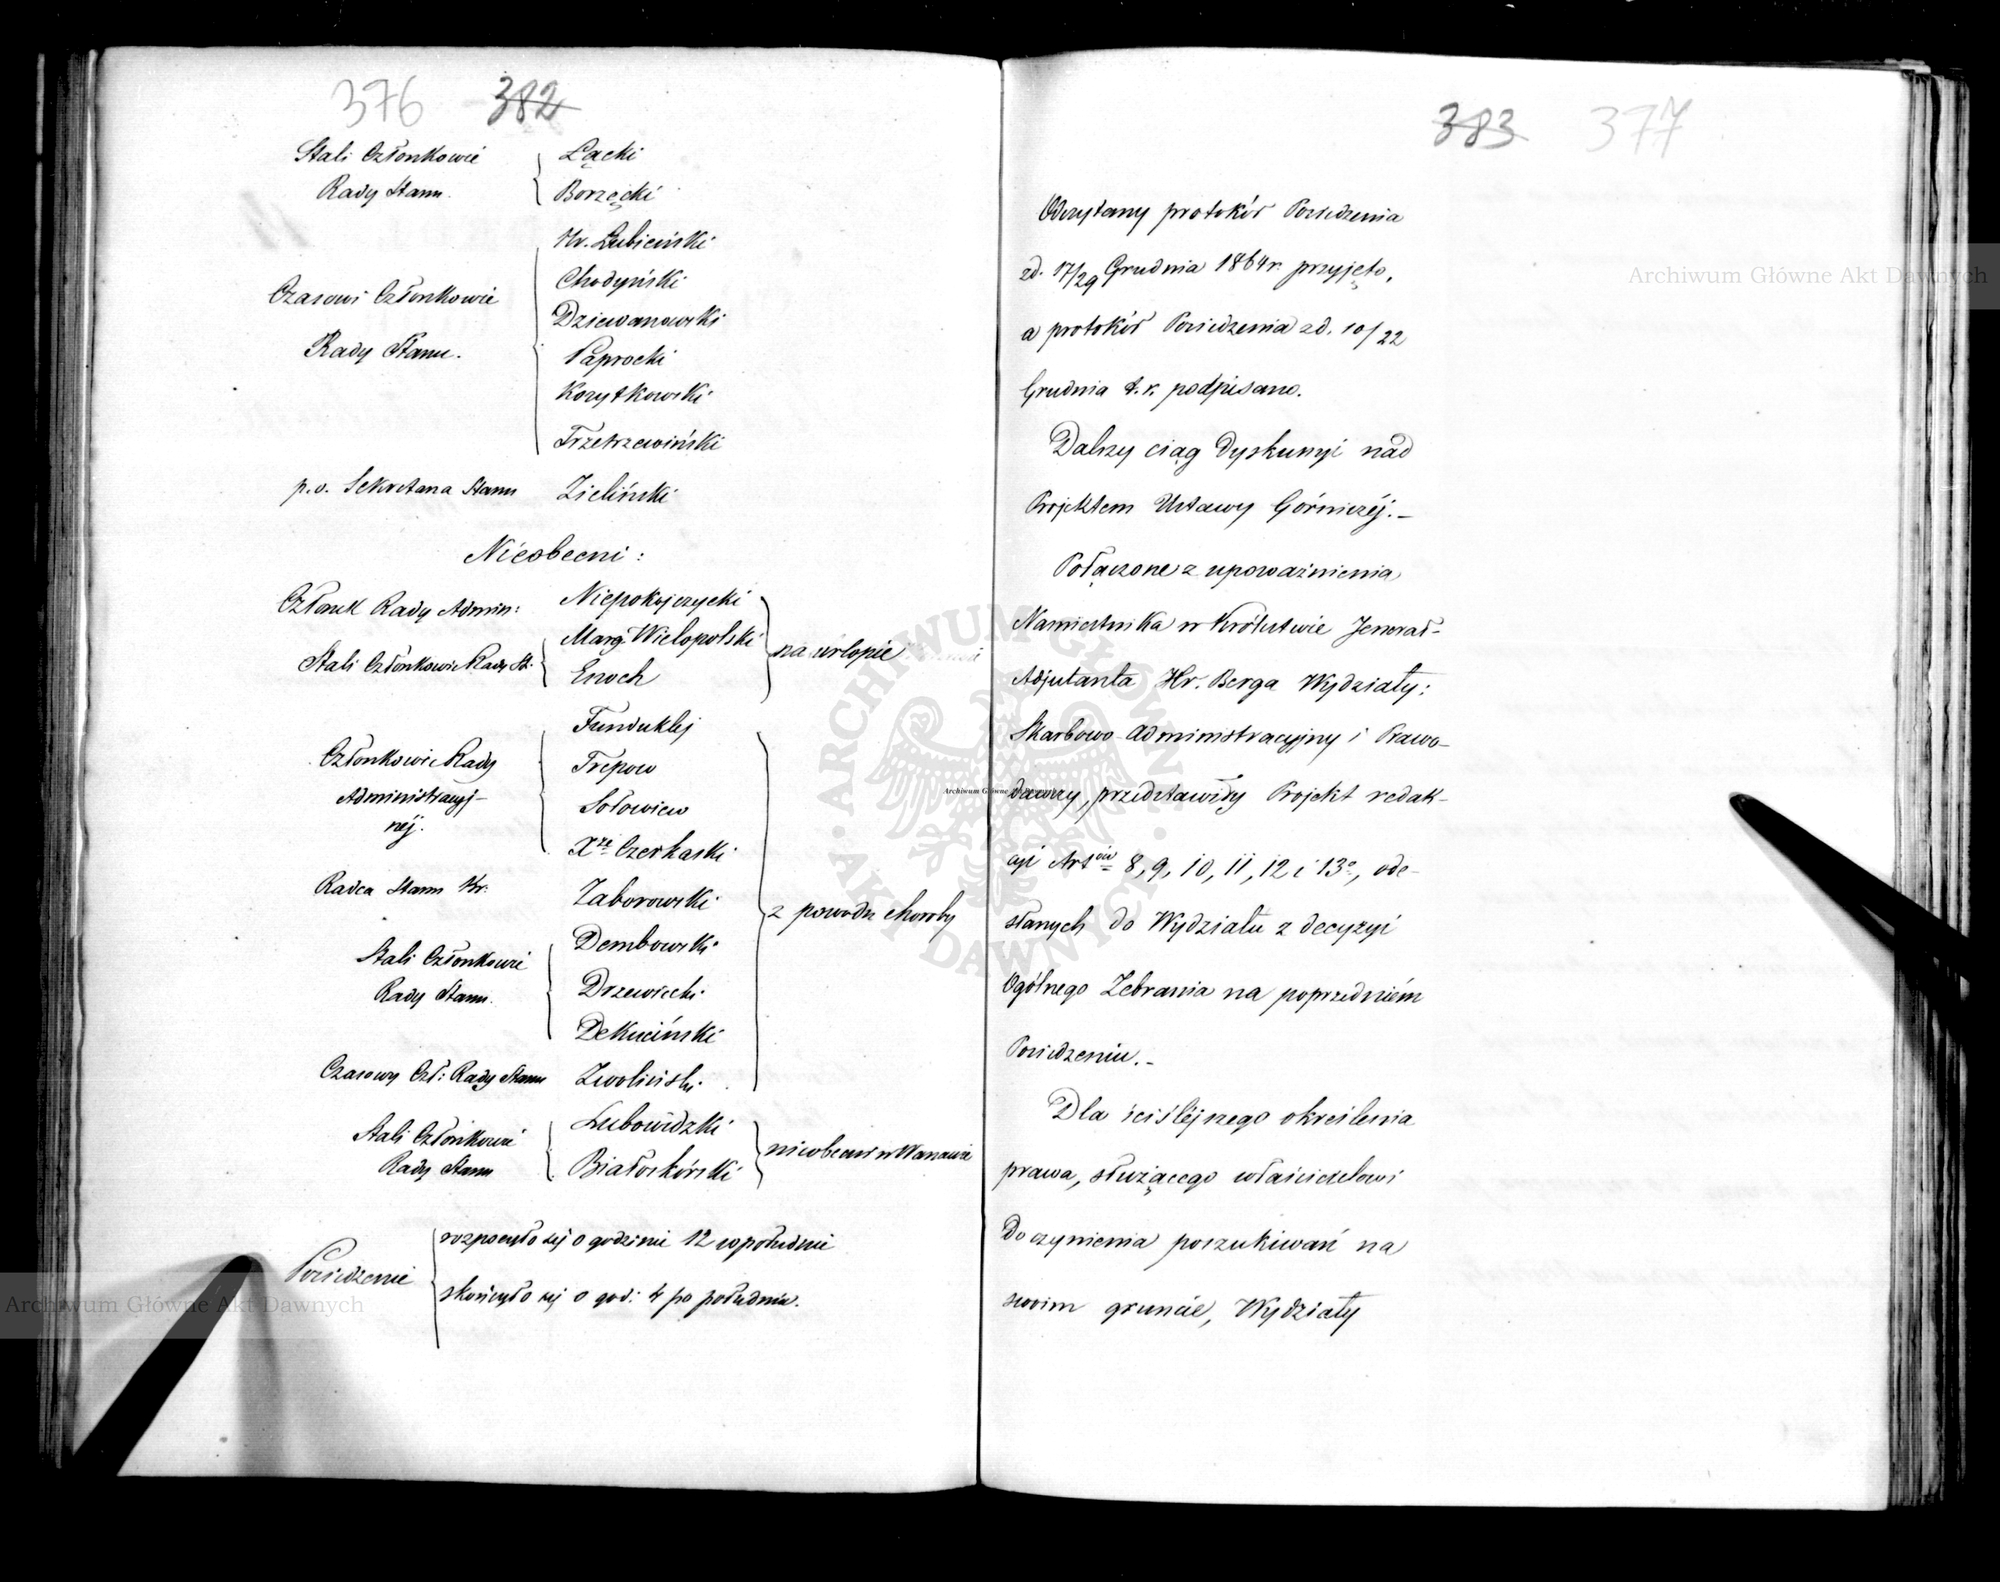 376 382
Stali Członkowie
Rady Stanu.
Łącki
Borzęcki
Czasowi Członkowie
Rady Stanu.
Hr. Łubieński
Chodyński
Dziewanowski
Paprocki
Korytkowski
Trzetrzewiński
p.o. Sekretarza Stanu Zieliński
Nieobecni:
Członek Rady Admin: Niepokojczycki
Stali Członkowie Rady St.
Marg. Wielopolski
Enoch
na urlopie
Członkowie Rady
Administracyj-
néj.
Funduklej
Trepow
Sołowiew
Xże Czerkaski
Radca Stanu Kr: Zaborowski
Stali Członkowie
Rady Stanu.
Dembowski
Drzewiecki
Dekuciński
Czasowy Czł: Rady Stanu Zwoliński
z powodu choroby
Stali Członkowie
Rady Stanu
Lubowidzki
Białoskórski
nieobecni w Warszawie
Posiedzenie
rozpoczęło się o godzinie 12 w południe
skończyło się o god: 4 po południu.
383 377
Odczytany protokół Posiedzenia
zd. 17/29 Grudnia 1864 r. przyjęto,
a protokół Posiedzenia zd. 10/22
Grudnia t. r. podpisano.
Dalszy ciąg dyskussyi nad
Projektem Ustawy Górniczéj.–
Połączone z upoważnienia
Namiestnika w Królestwie Jenerał-
Adjutanta Hr. Berga Wydziały:
Skarbowo-Administracyjny i Prawo-
dawczy, przedstawiły Projekt redak-
cyi Artów 8, 9, 10, 11, 12 i 13o, ode-
słanych do Wydziału z decyzyi
Ogólnego Zebrania na poprzedniém
Posiedzeniu.–
Dla ściśléjszego określenia
prawa, służącego właścicielowi
do czynienia poszukiwań na
swoim gruncie, Wydziały
Archiwum Główne Akt Dawnych
Archiwum Główne Akt Dawnych
ARCHIWUM GŁÓWNE AKT DAWNYCH